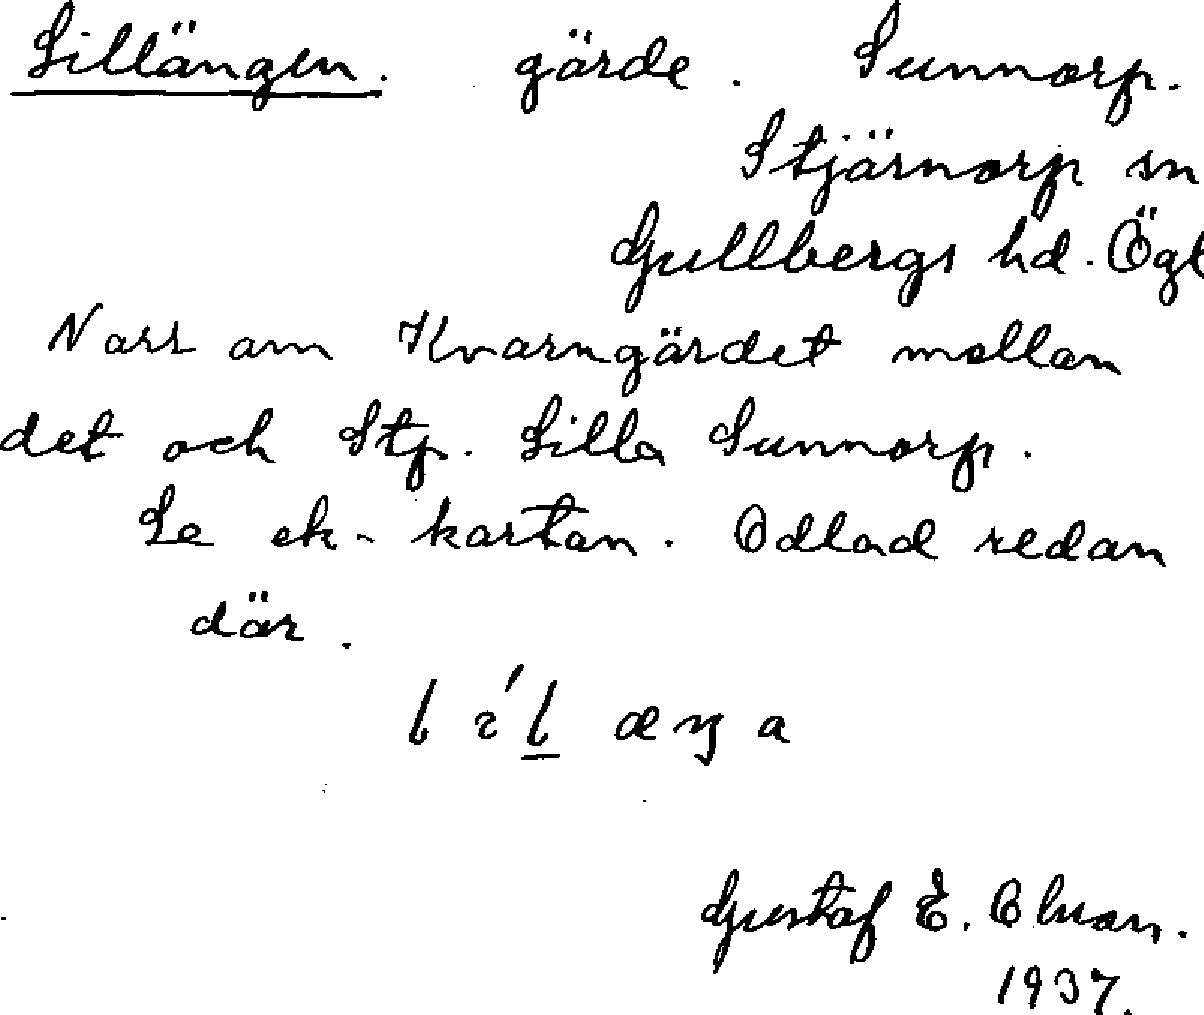 Lillängen. gärde. Sunnorp.
Stjärnorp sn
Gullbergs hd. Ögl
Norr om Kvarngärdet mellan
det och Stp. Lilla Sunnorp.
Se ek-kartan. Odlad redan
där.
l ı´l æŋa
Gustaf E. Olsson.
1937.